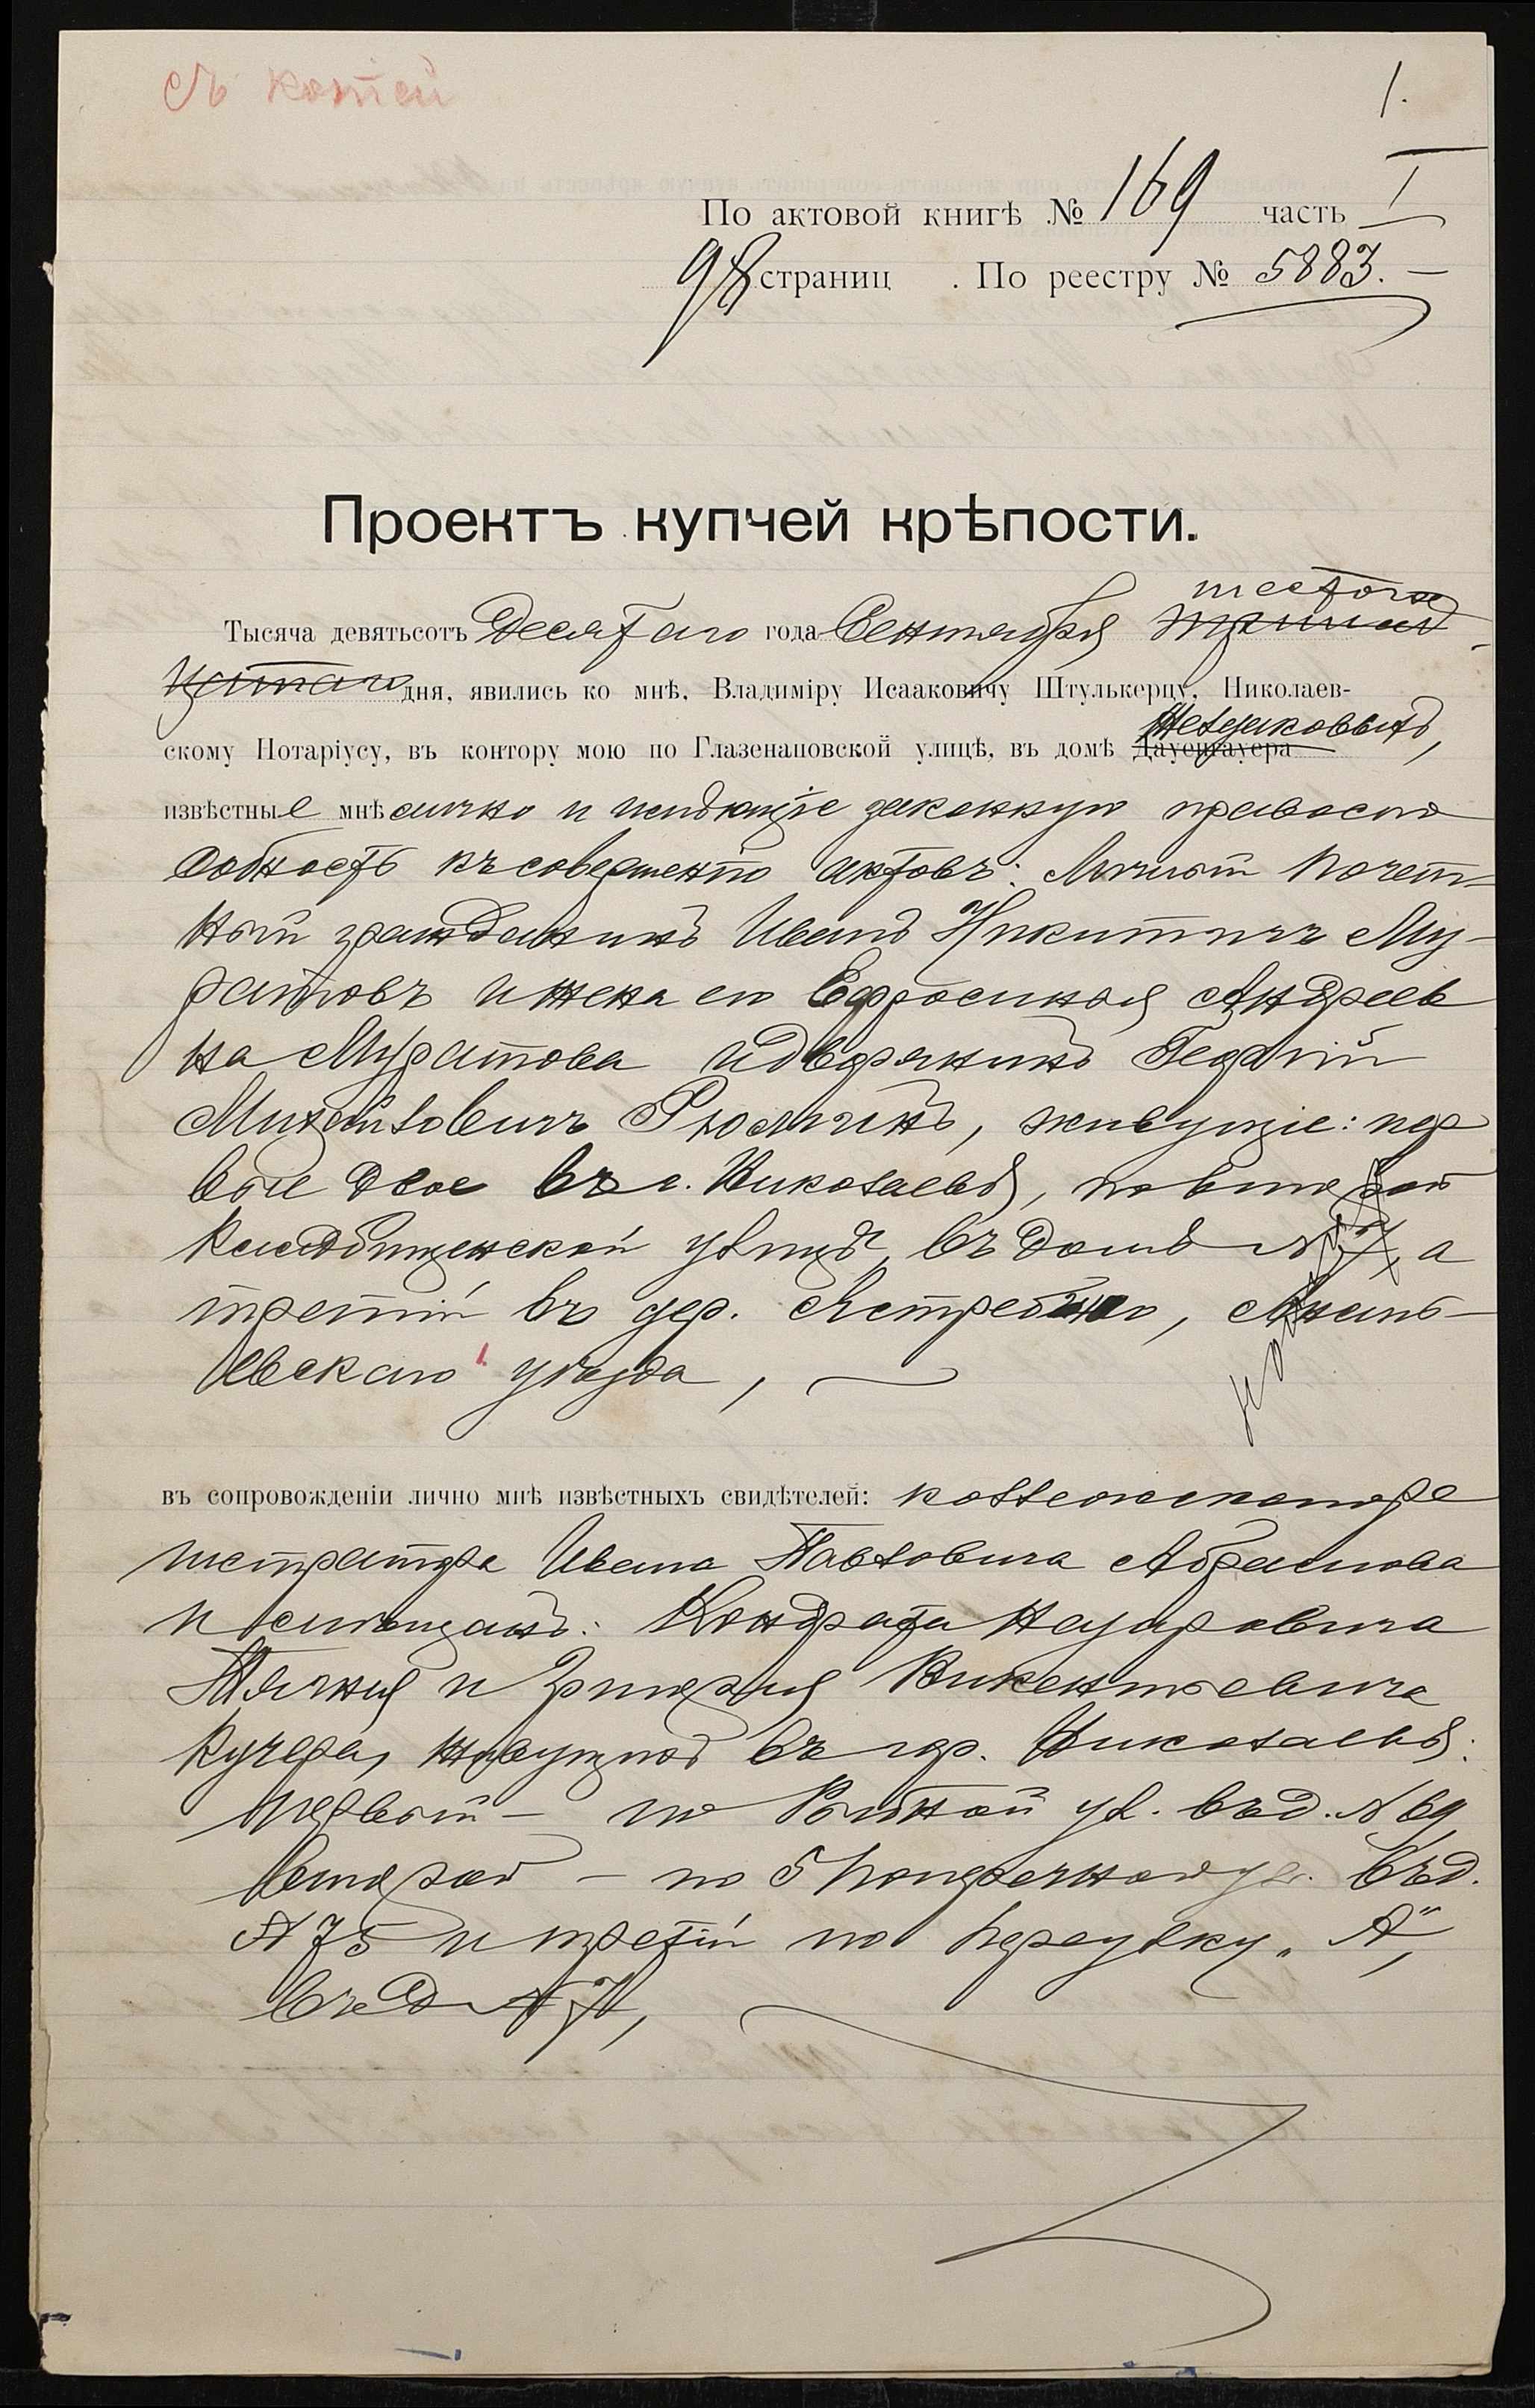 съ копіей
1.
По актовой книгѣ № 169 часть I
98 страниц . По реестру № 5883. —
Проектъ купчей крѣпости.
шестого
Тысяча девятьсотъ десятаго года Сентября тринад-
цатаго дня, явились ко мнѣ, Владиміру Исааковичу Штулькерцу, Николаев-
скому Нотаріусу, въ контору мою по Глазенаповской улицѣ, въ домѣ Дауенгауера
извѣстные мнѣ лично и имѣющіе законную правоспо
собность къ совершенію актовъ: Личный почет-
ный гражданинъ Иванъ Никитичъ Му-
ратовъ и жена его Ефросинія Андреев
на Муратова и дворянинъ Георгій
Михайловичъ Рюмминъ, живущіе: пер
вые двое въ г. Николаевѣ, по второй
Кладбищенской улицѣ, въ домѣ № 7, а
третій въ дер. Ястребино, Ананъ-
евскаго уѣзда,
въ сопровожденіи лично мнѣ извѣстныхъ свидѣтелей: коллежскаго ре
гистратора Ивана Павловича Абрамова
и мѣщанъ: Кондрата Назаровича
и Григорія Викентьевича
Кучера, живущихъ въ гор. Николаевѣ:
первый — по Рыбной ул. въ д. № 69
второй — по 5 Поперечной ул. въ д.
№ 75 и третій по переулку „А",
въ д №